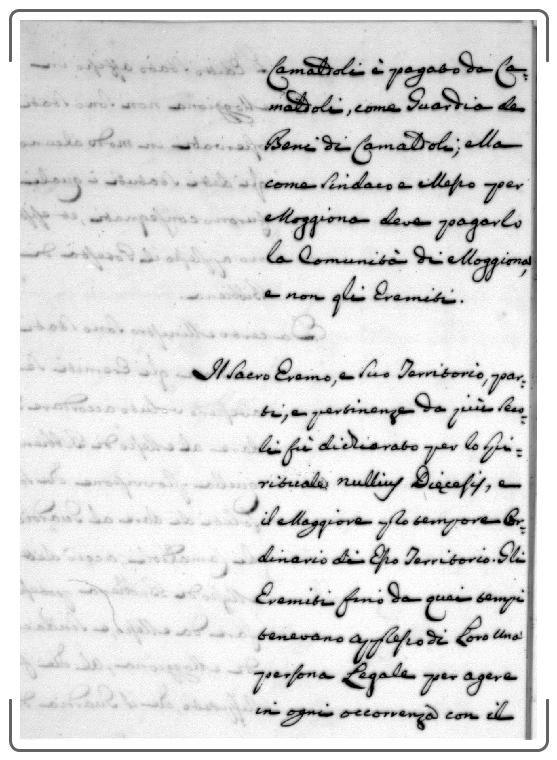 Camaldoli è pagato da Ca-
maldoli, come Guardia de
Beni di Camaldoli; Ma
come Sindaco e Messo per
Moggiona deve pagarlo
la Comunità di Moggiona,
e non gli Eremiti.
Il Sacro Eremo, e suo Territorio, par-
ti, e pertinenze da più seco-
li fù dichiarato per lo spi-
rituale nullius Diecesis, e
il Maggiore pro tempore Or-
dinario di Esso Territorio. Gli
Eremiti fino da quei tempi
tenevano appresso di Loro una
persona Legale per agere
in ogni occorrenza con il